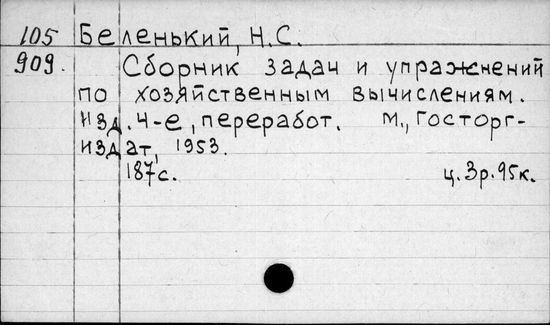 105 Беленький, Н.С.
909. Сборник задач и упражнений
по хозяйственным вычислениям.
Изд. 4-е, переработ. М., Госторг-
издат, 1953.
187с. ц. 3р. 95к.